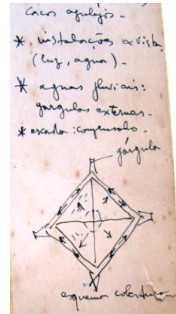 cacos azulejos -
* instalações a vista
(luz, agua).
* aguas pluviais:
gárgulas externas.
* escada: compensado.
gárgula
esquema cobertura